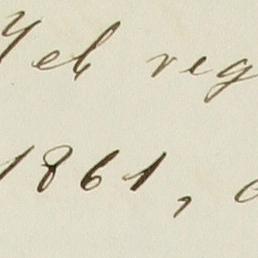 Yeb reg
1861,